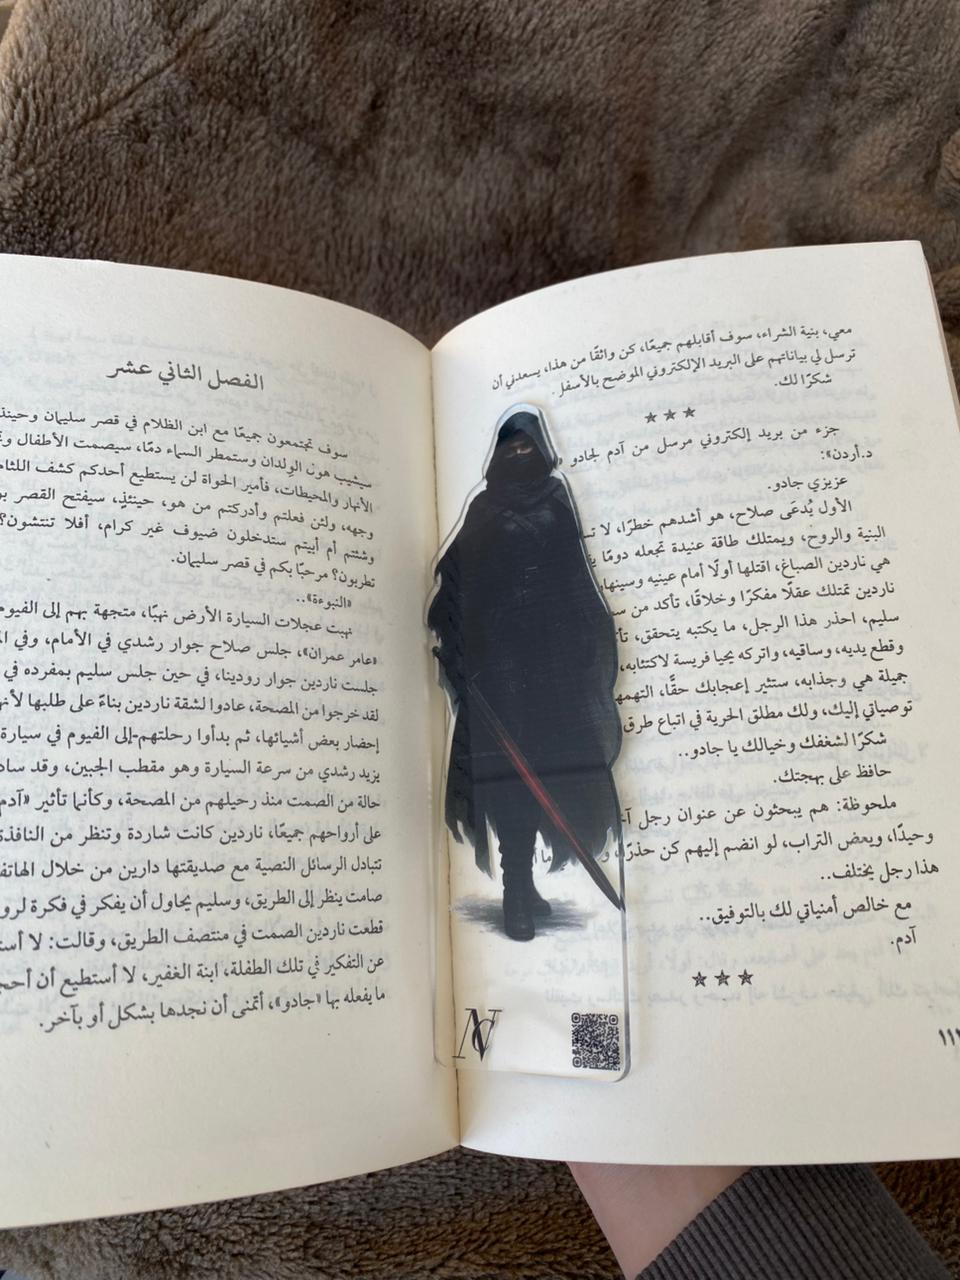 معي، بنية الشراء، سوف أقابلهم جميعًا، كن واثقًا من هذا، يسعدني أن
ترسل لي بياناتهم على البريد الإلكتروني الموضح بالأسفل.
شكرًا لك.
***
جزء من بريد إلكتروني مرسل من آدم لجادو
د.أردن»:
عزيزي جادو.
الأول يُدعَى صلاح، هو أشدهم خطرًا، لا
البنية والروح، ويمتلك طاقة عنيدة تجعله دومًا
هي ناردين الصباغ، اقتلها أولًا أمام عينيه وسينهار
ناردين تمتلك عقلًا مفكرًا وخلاقًا، تأكد من
سليم، احذر هذا الرجل، ما يكتبه يتحقق،
وقطع يديه، وساقيه، واتركه يحيا فريسة لاكتئابه،
جميلة هي وجذابه، ستثير إعجابك حقًّا، التهمها
توصياتي إليك، ولك مطلق الحرية في اتباع طرق
شكرًا لشغفك وخيالك يا جادو..
حافظ على بهجتك.
ملحوظة: هم يبحثون عن عنوان رجل
وحيدًا، وبعض التراب، لو انضم إليهم كن حذرًا،
هذا رجل يختلف..
مع خالص أمنياتي لك بالتوفيق..
آدم.
***
الفصل الثاني عشر
سوف تجتمعون جميعًا مع ابن الظلام في قصر سليمان
سيشيب هون الوِلدان وستمطر السماء دمًا، سيصمت الأطفال
الأنهار والمحيطات، فأمير الحواة لن يستطيع أحدكم كشف اللثام
وجهه، ولئن فعلتم وأدركتم من هو، حينئذٍ، سيفتح القصر
وشئتم أم أبيتم ستدخلون ضيوف غير كرام، أفلا تنتشون؟
تطربون؟ مرحبًا بكم في قصر سليمان.
«النبوءة»..
نهبت عجلات السيارة الأرض نهبًا، متجهة بهم إلى الفيوم
«عامر عمران»، جلس صلاح جوار رشدي في الأمام، وفي
جلست ناردين جوار رودينا، في حين جلس سليم بمفرده في
لقد خرجوا من المصحة، عادوا لشقة ناردين بناءً على طلبها
إحضار بعض أشيائها، ثم بدأوا رحلتهم-إلى الفيوم في سيارة
يزيد رشدي من سرعة السيارة وهو مقطب الجبين، وقد ساد
حالة من الصمت منذ رحيلهم من المصحة، وكأنما تأثير «آدم
على أرواحهم جميعًا، ناردين كانت شاردة وتنظر من النافذة
تتبادل الرسائل النصية مع صديقتها دارين من خلال الهاتف
صامت ينظر إلى الطريق، وسليم يحاول أن يفكر في فكرة
قطعت ناردين الصمت في منتصف الطريق، وقالت: لا
عن التفكير في تلك الطفلة، ابنة الغفير، لا أستطيع أن
ما يفعله بها «جادو»، أتمنى أن نجدها بشكل أو بآخر.